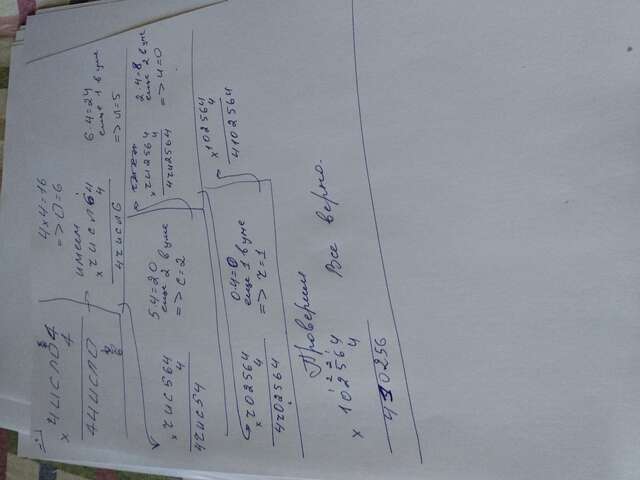 ЧИСЛО4
× 4
4ЧИСЛО
4×4=16
=> О=6
имеем
ЧИСЛ64
× 4
4ЧИСЛ6
6·4=24
еще 1 в уме
=> Л=5
× ЧИС564
4
4ЧИС54
5·4=20
еще 2 в уме
=> С=2
× ЧИ2564
4
4ЧИ2564
2·4=8
еще 2 в уме
=> И=0
× Ч02564
4
4Ч02564
0·4=0
еще 1 в уме
=> Ч=1
×102564
4
4102564
Проверим
1 2 2 1
× 102564
4
410256
Все верно.